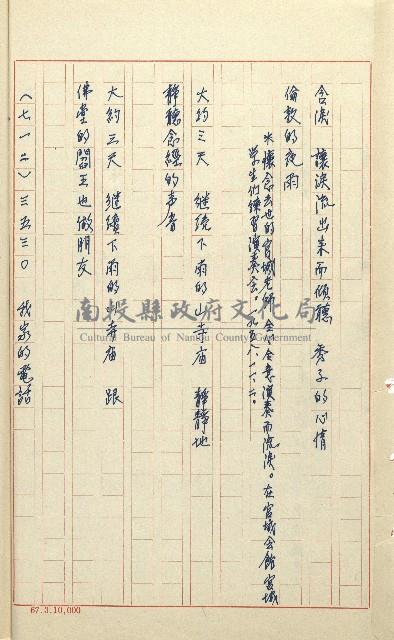 含淚 讓淚流出来而傾聽 秀子的心情
倫敦的夜雨
※懷念去世的宮城老師 全心全意演奏而流淚。在宮城会館宮城
学生們練習演奏会。一九五八・一・六・二。
大約三天 继續下雨的山寺庙 靜靜地
靜聽念經的声音
大約三天 继續下雨的山寺庙 跟
佛堂的閻王也做朋友
(七一二)三五三〇 我家的電話
南投縣政府文化局
Cultural Bureau of Nantou County Government
67.3.10,000